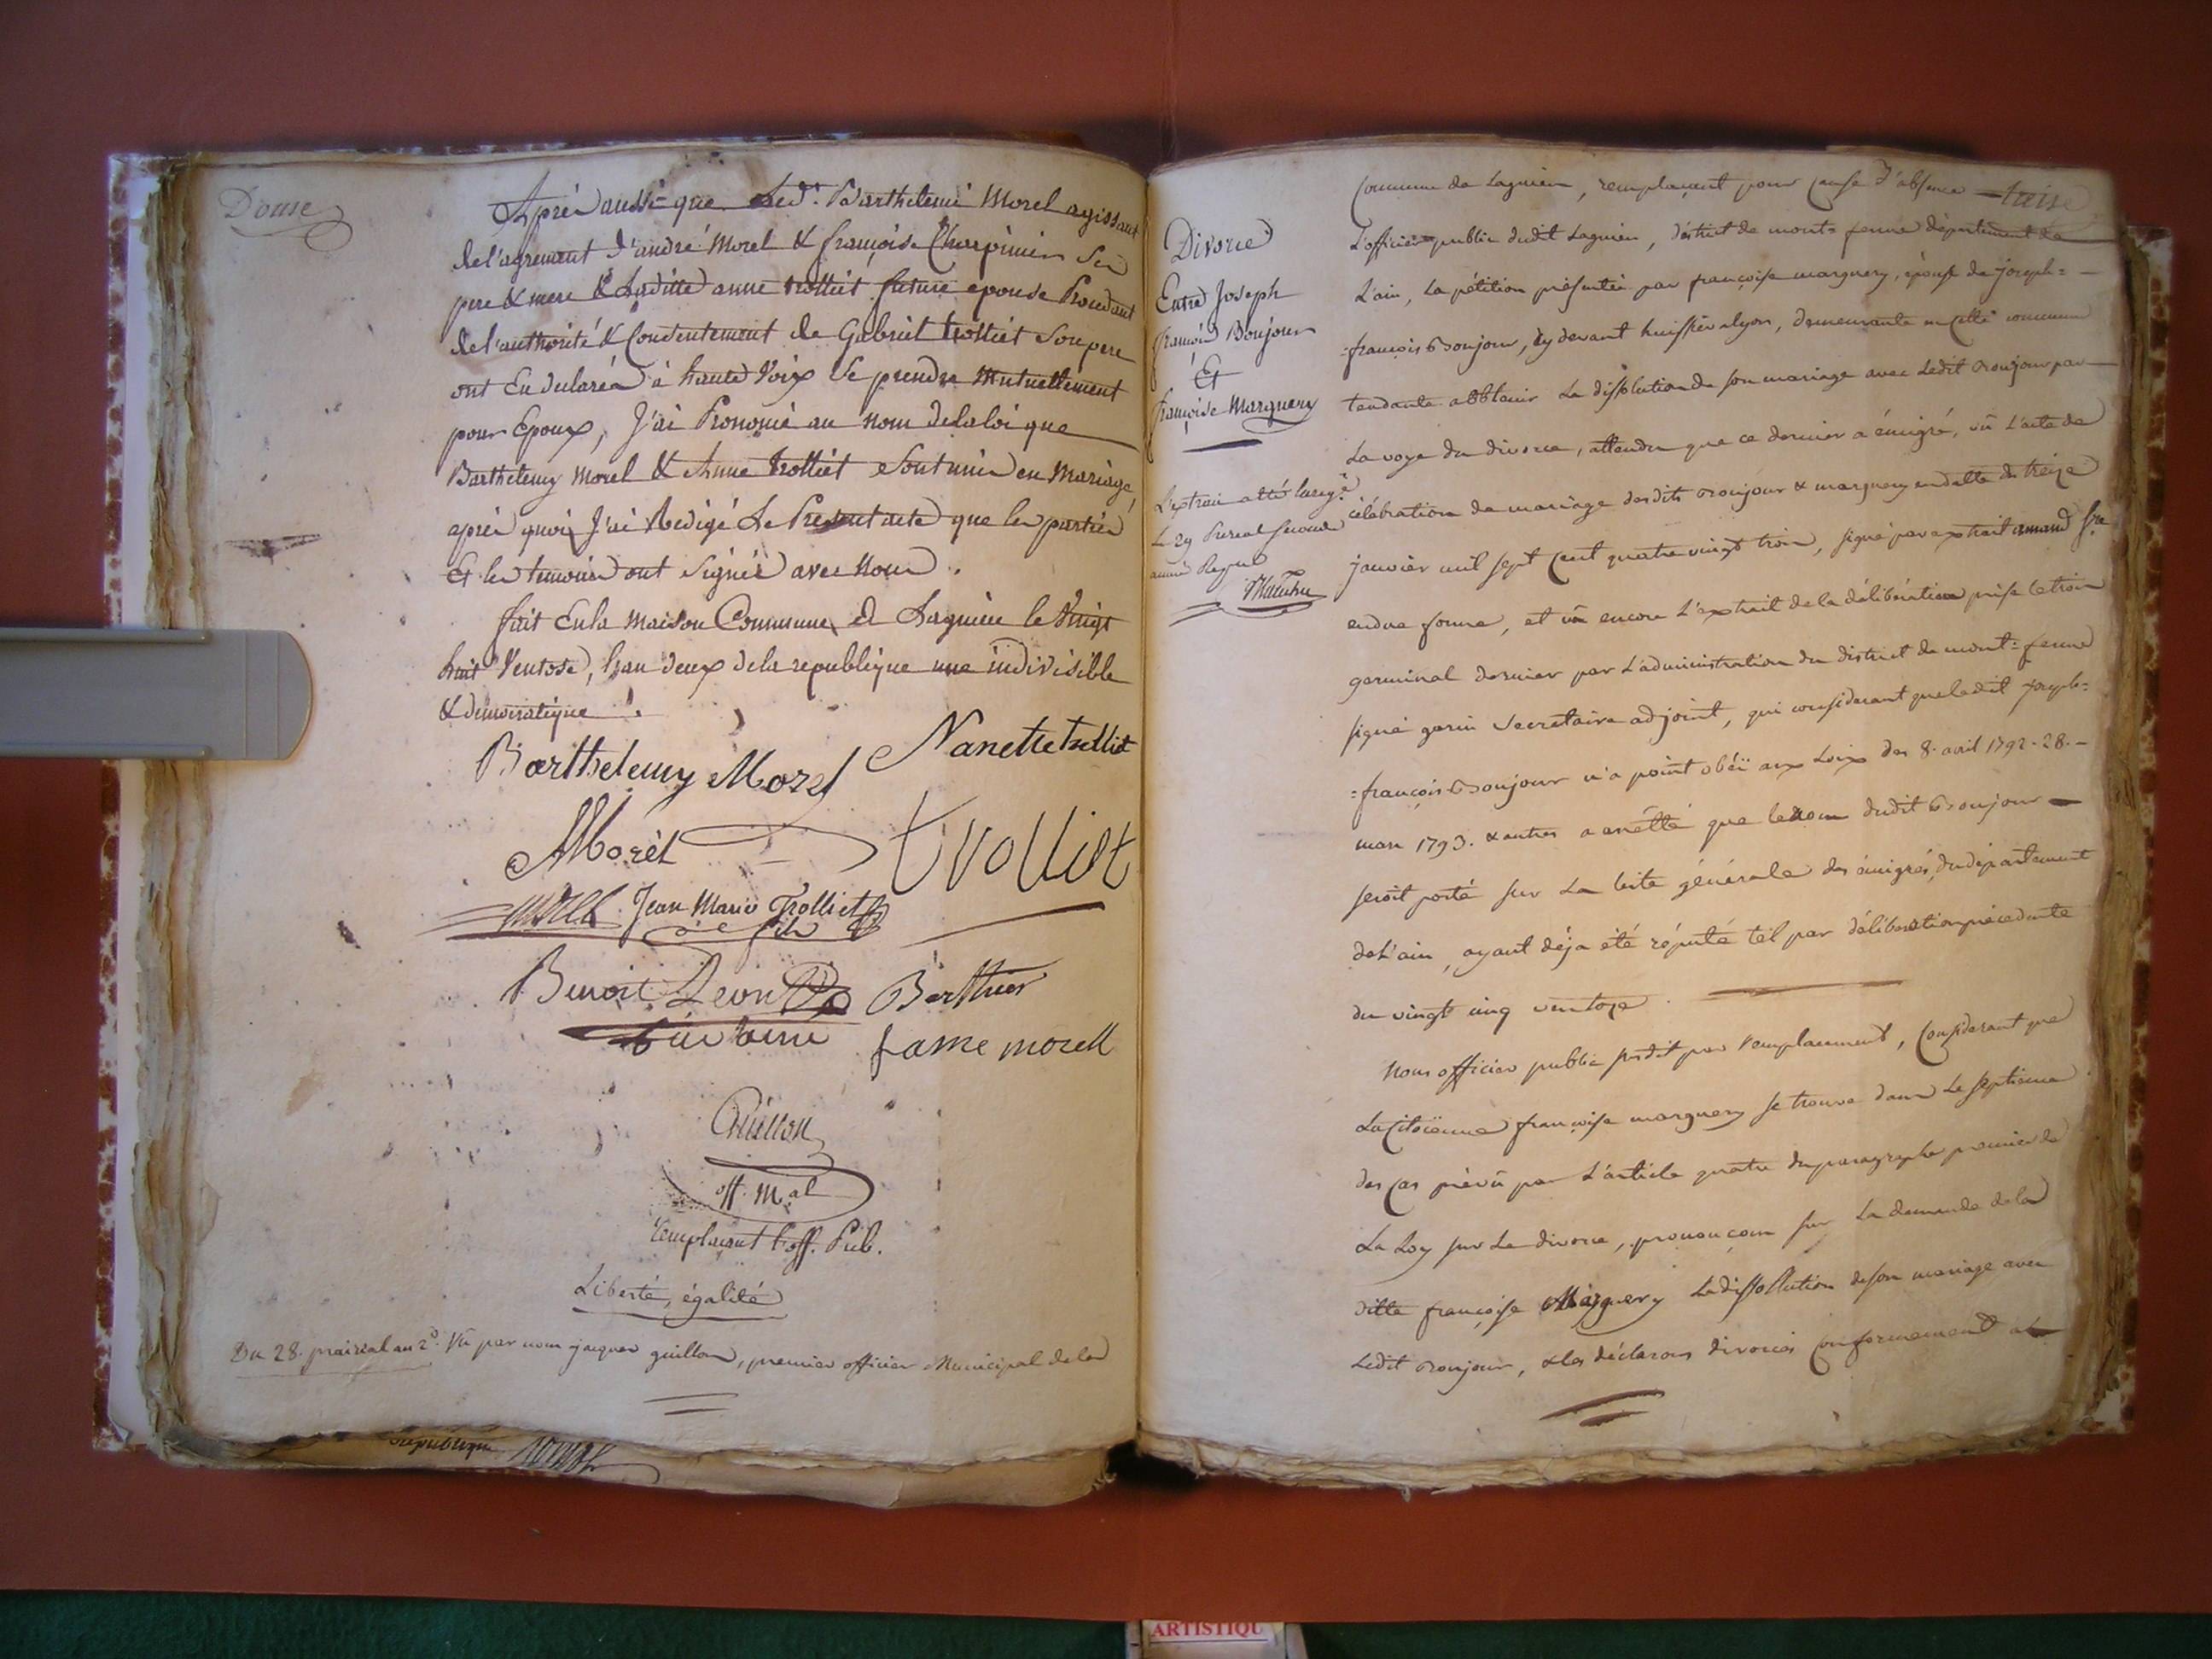 Douse
Après aussi que led. Barthelemi Morel agissant
de l'agrement d'andré Morel & françoise Charpinin Ses
pere & mere & Laditte anne trolliet future epouse Procedant
de l'authorité & Consentement de Gabriel trolliet Son pere
ont En declarés à haute Voix Se prendre Mutuellement
pour Epoux, J'ai Prononcé au nom de la loi que
Barthelemy Morel & Anne trolliet Sont unis en Mariage,
après quoi J'ai Redigé Le Present acte que les parties
Et les temoins ont Signés avec Nous.
fait En la Maison Commune de Lagnieu le Vingt
huit Ventose, L'an deux de la republique une indivisible
& democratique.
Barthelemy Morel Nanette trolliet
AMorèl trolliet
morel Jean Marie Trolliet
fils
Benoit Leon Berthier
fame morell
Guillon
off. M.al
remplacant l'off. Pub.
Liberté, égalité
Du 28. prairial an 2.e Vû par nous jacques guillon, premier officier Municipal de la
republique
treise
Commune de Lagnieu, remplaçant pour Cause d'absence
L'officier public dudit Lagnieu, district de mont-ferme département de
L'ain, La pétition présentée par françoise marguery, épouse de joseph=
=françois Bonjour, Cy devant huissier a lyon, demeurante en Cette commune
tendante a obtenir La dissolution de son mariage avec Ledit Bonjour par
La voye du divorce, attendu que ce dernier a émigré, vû L'acte de
célébration de mariage desdits Bonjour & marguery en datte du treize
janvier mil sept Cent quatre vingt trois, signé par extrait amand
en due forme, et vû encore L'extrait de la délibération prise le trois
germinal dernier par L'administration du district de mont=ferme
signé garin Secretaire adjoint, qui considerant que ledit joseph=
=françois Bonjour n'a point obéï aux Loix des 8. avril 1792. 28.
mars 1793. & autres a arrêtté que le nom dudit Bonjour
seroit porté sur La liste générale des émigrés, du département
de L'ain, ayant déja été réputé tel par délibération précedente
du vingt cinq ventoze.
Nous officier public susdit par remplacement, Considerant que
La Citoienne françoise marguery se trouve dans Le septieme
des Cas prévû par L'article quatre du paragraphe premier de
La Loy sur Le divorce, prononçons sur La demande de la
ditte françoise Marguery La dissolution de son mariage avec
Ledit Bonjour, & les déclarons divorcés Conformement a
Divorce
Entre Joseph
françois Boujour
Et
françoise Marguery
L'extrai a été
L 29 Prereal seconde
année
ARTISTIQU